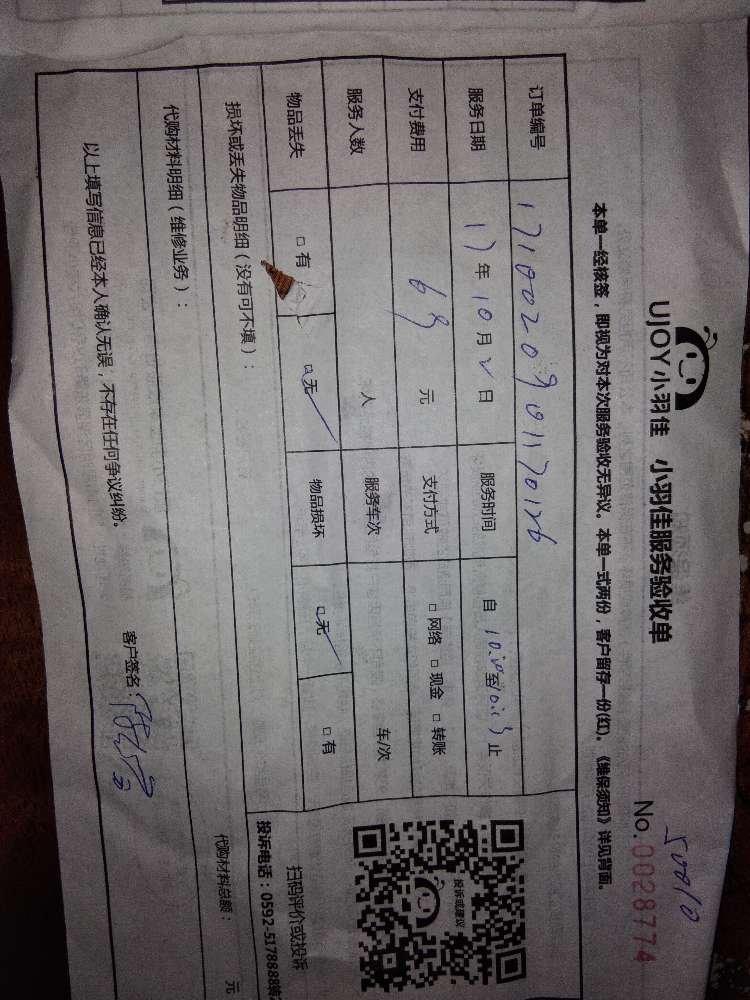 UJOY小羽佳 小羽佳服务验收单
No.0028774
本单一经核签，即视为对本次服务验收无异议。本单一式两份，客户留存一份(红)。《维保须知》详见背面。
订单编号 171002090901170126
服务日期 17年10月2日 服务时间 自 至 止
支付费用 69元 支付方式 □网络 □现金 □转账
服务人数 人 服务车次 车/次
物品丢失 □有 □无 物品损坏 □无 □有
损坏或丢失物品明细（没有可不填）：
代购材料明细（维修业务）：
代购材料总额： 元
以上填写信息已经本人确认无误，不存在任何争议纠纷。
客户签名：
投诉或建议
扫码评价或投诉
投诉电话：0592-5178888转